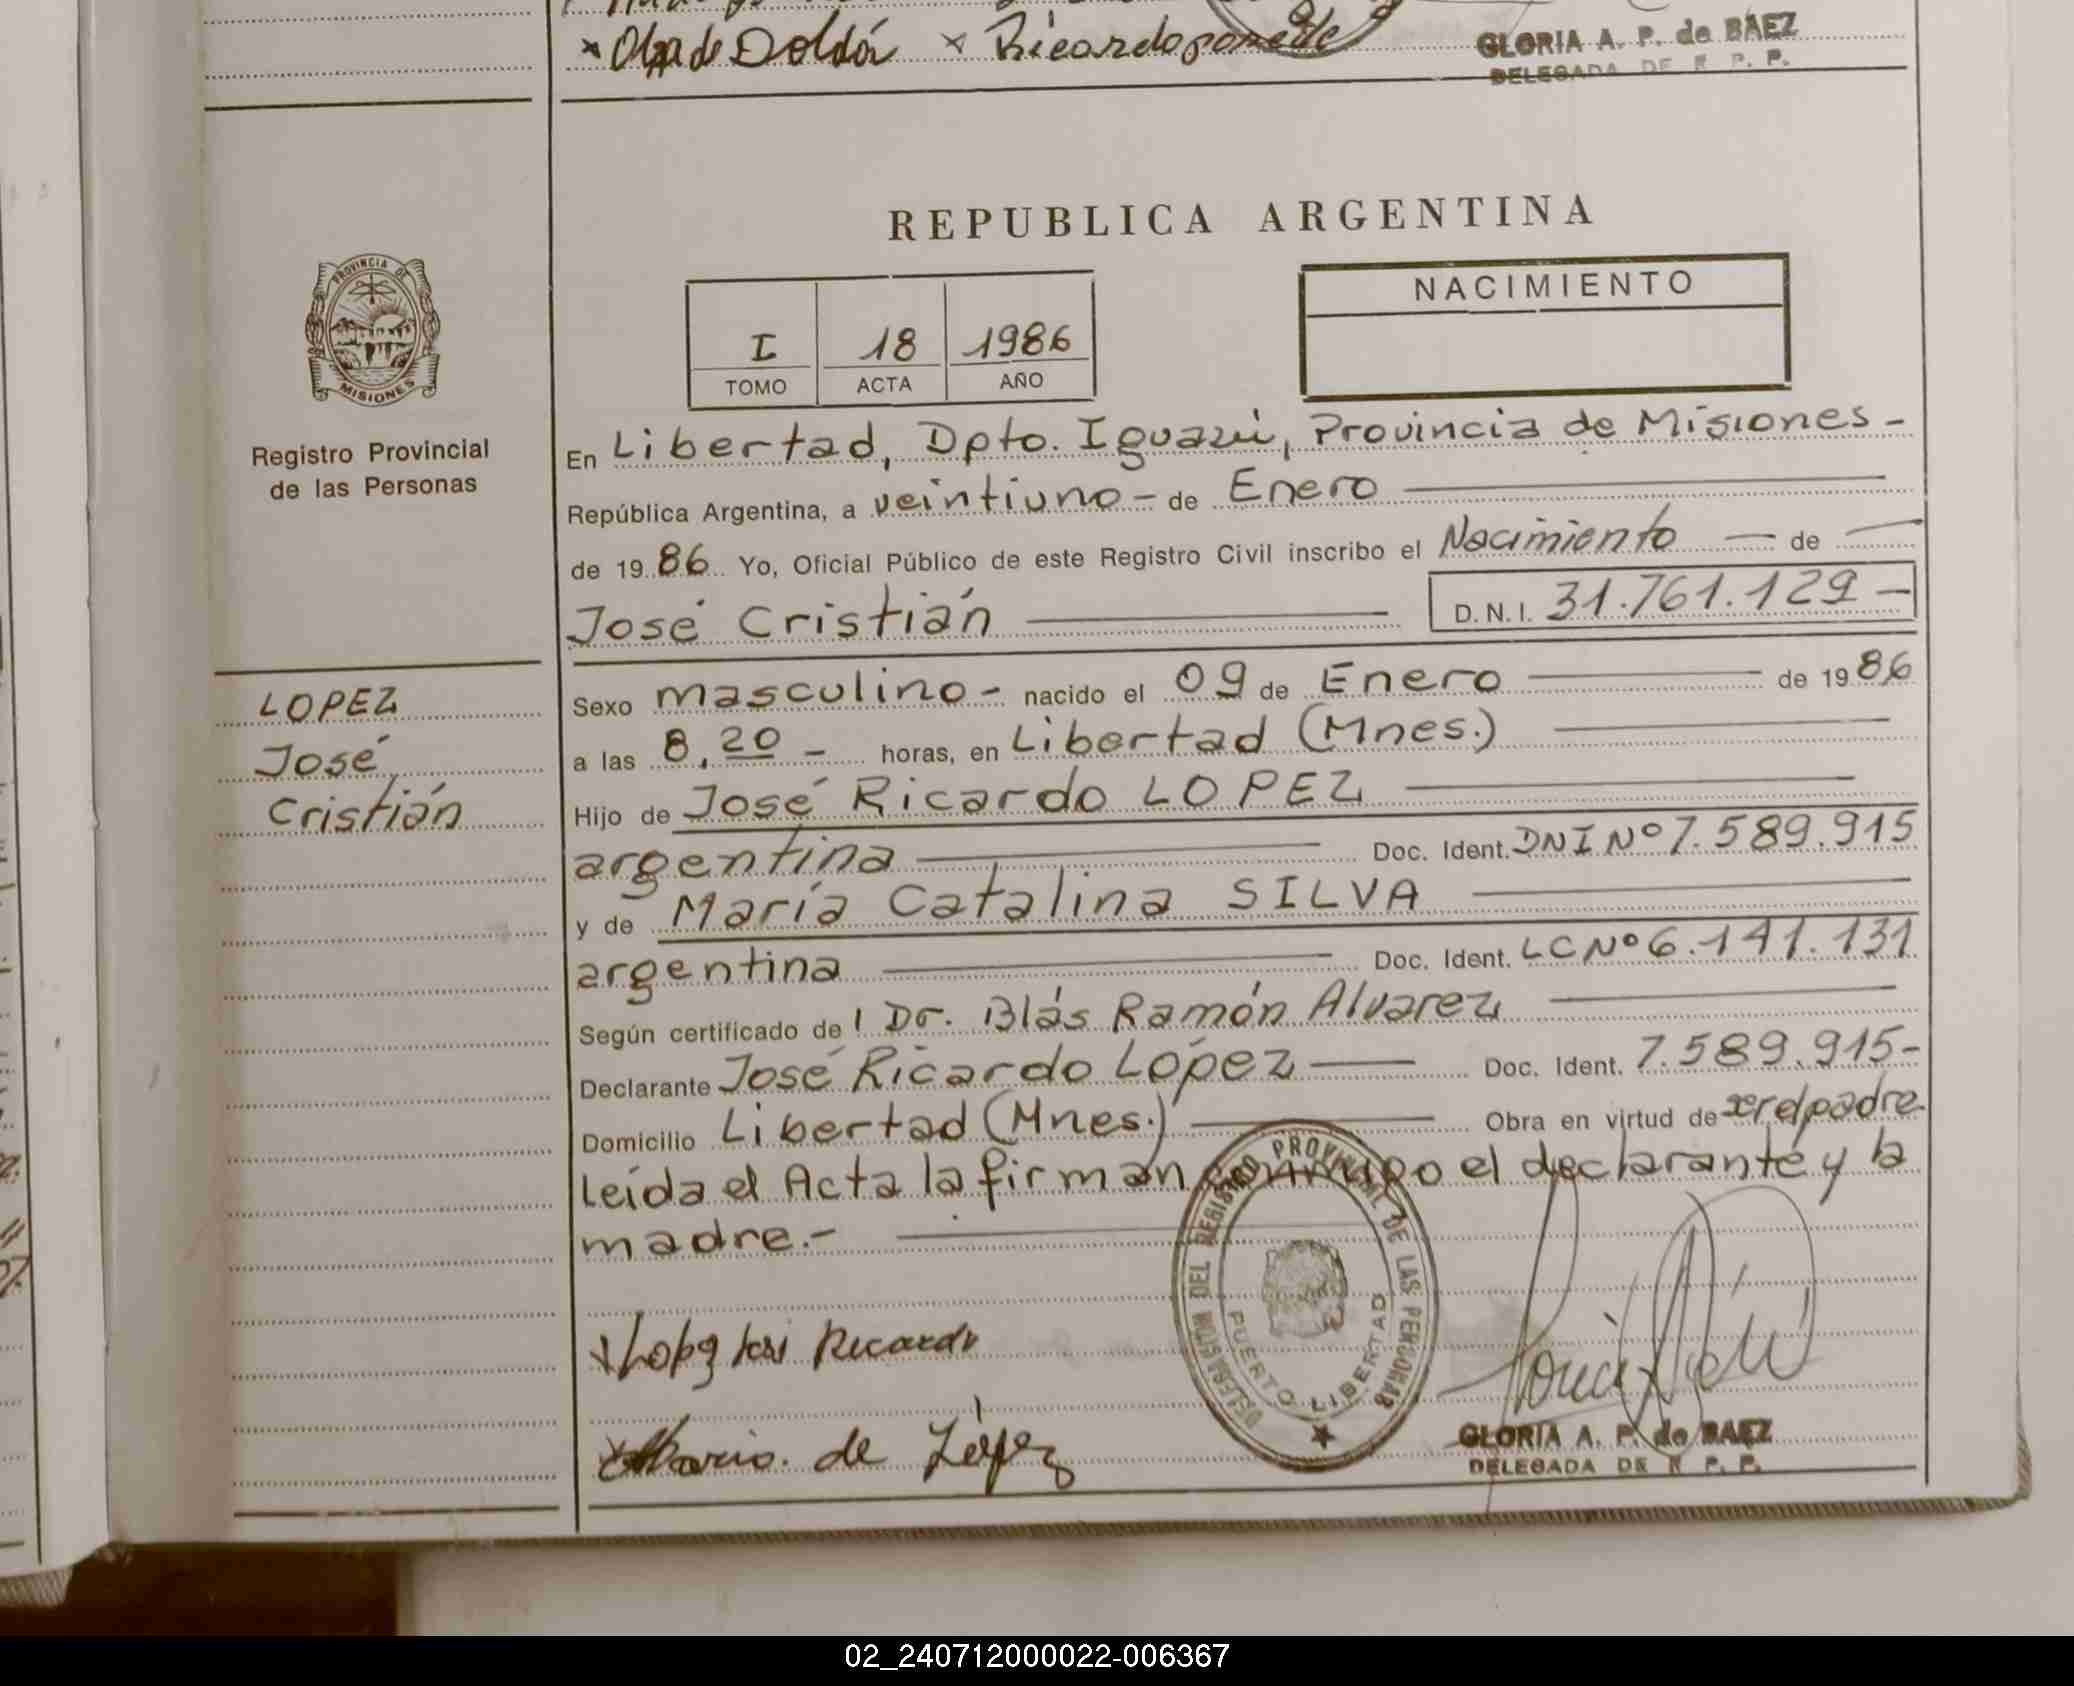 x Olga de Doldán x Ricardo
GLORIA A. P. de BAEZ
DELEGADA DE R. P. P.
REPUBLICA ARGENTINA
PROVINCIA DE
MISIONES
Registro Provincial
de las Personas
I 18 1986
TOMO ACTA AÑO
NACIMIENTO
En Libertad, Dpto. Iguazú, Provincia de Misiones -
República Argentina, a veintiuno - de Enero
de 1986 Yo, Oficial Público de este Registro Civil inscribo el Nacimiento — de —
José Cristián
D.N.I. 31.761.129 -
LOPEZ
José
Cristián
Sexo masculino - nacido el 09 de Enero — de 1986
a las 8,20 - horas, en Libertad (Mnes.)
Hijo de José Ricardo LOPEZ
argentina — Doc. Ident. DNI Nº 7.589.915
y de María Catalina SILVA
argentina — Doc. Ident. LC Nº 6.141.131
Según certificado de l Dr. Blás Ramón Alvarez
Declarante José Ricardo López — Doc. Ident. 7.589.915-
Domicilio Libertad (Mnes.) — Obra en virtud de ser el padre
Leída el Acta la firman conmigo el declarante y la
madre.-
DELEGACION DEL REGISTRO PROVINCIAL DE LAS PERSONAS
PUERTO LIBERTAD
x Lopez José Ricardo
x María de López
GLORIA A. P. de BAEZ
DELEGADA DE R. P. P.
02_240712000022-006367